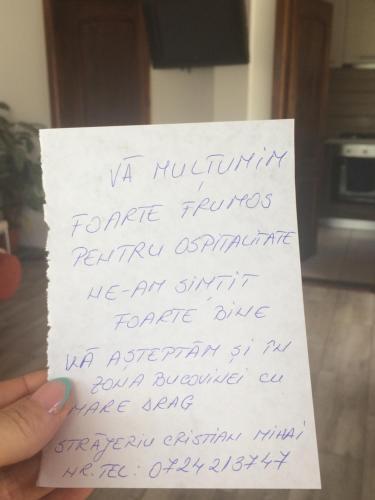 VĂ MULȚUMIM
FOARTE FRUMOS
PENTRU OSPITALITATE
NE-AM SIMȚIT
FOARTE BINE
VĂ AȘTEPTĂM ȘI ÎN
ZONA BUCOVINEI CU
MARE DRAG
STRĂJERIU CRISTIAN MIHAI
NR.TEL: 0724213747